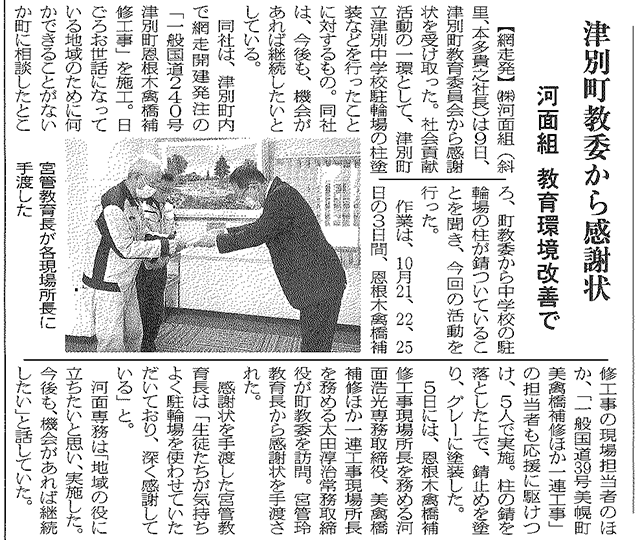 津別町教委から感謝状
河面組 教育環境改善で
【網走発】㈱河面組(斜
里、本多貴之社長)は9日、
津別町教育委員会から感謝
状を受け取った。社会貢献
活動の一環として、津別町
立津別中学校駐輪場の柱塗
装などを行ったこと
に対するもの。同社
は、今後も、機会が
あれば継続したいと
している。
同社は、津別町内
で網走開建発注の
「一般国道240号
津別町恩根木禽橋補
修工事」を施工。日
ごろお世話になって
いる地域のために何
かできることがない
か町に相談したとこ
ろ、町教委から中学校の駐
輪場の柱が錆ついているこ
とを聞き、今回の活動を
行った。
作業は、10月21、22、25
日の3日間、恩根木禽橋補
宮管教育長が各現場所長に
手渡した
修工事の現場担当者のほ
か、「一般国道39号美幌町
美禽橋補修ほか一連工事」
の担当者も応援に駆けつ
け、5人で実施。柱の錆を
落とした上で、錆止めを塗
り、グレーに塗装した。
5日には、恩根木禽橋補
修工事現場所長を務める河
面浩光専務取締役、美禽橋
補修ほか一連工事現場所長
を務める太田淳治常務取締
役が町教委を訪問。宮管玲
教育長から感謝状を手渡さ
れた。
感謝状を手渡した宮管教
育長は「生徒たちが気持ち
よく駐輪場を使わせていた
だいており、深く感謝して
いる」と。
河面専務は「地域の役に
立ちたいと思い、実施した。
今後も、機会があれば継続
したい」と話していた。